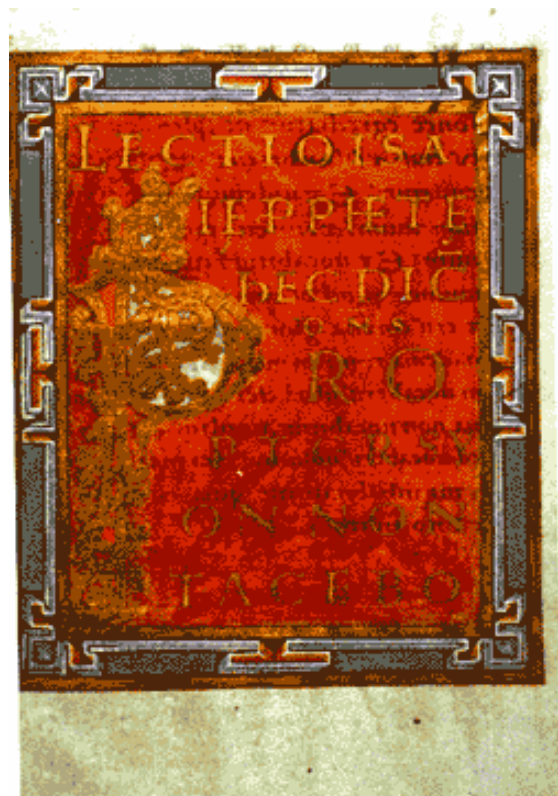 LECTIO ISA
IE PPHETE
hEC DIC
DNS
PRO
PTER SY
ON NON
TACEBO